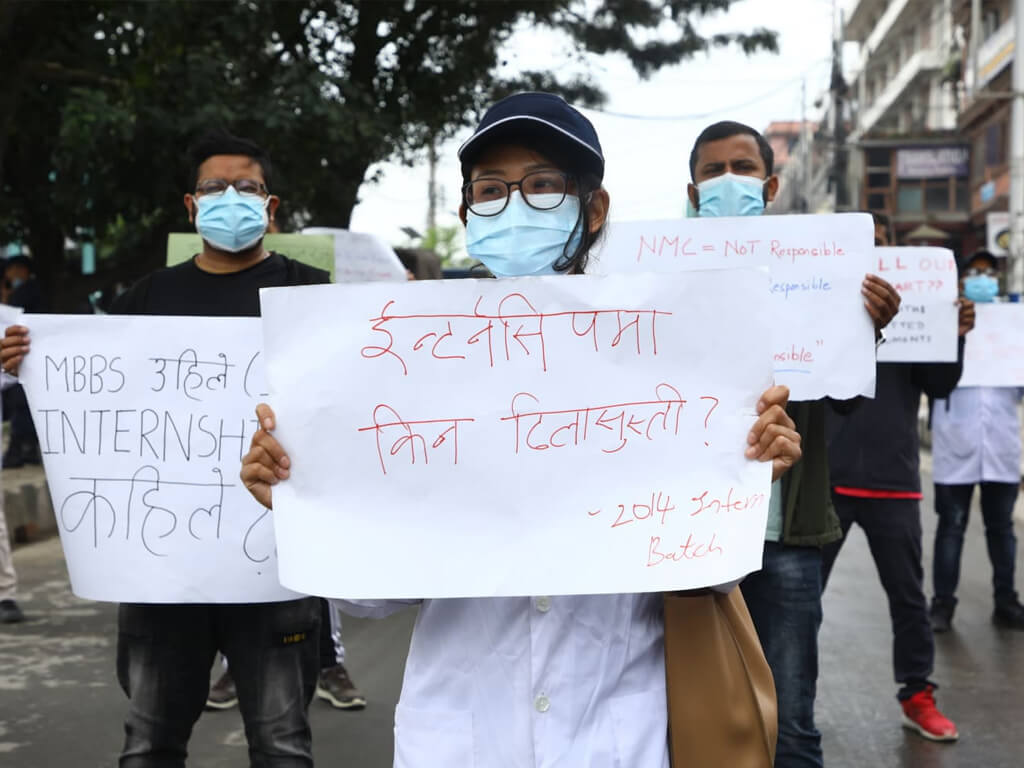 MBBS उहिले (
INTERNSHI
कहिले ?
ईन्टर्नसिपमा
किन ढिलासुस्ती ?
- 2014 Intern
Batch
NMC = NOT Responsible
Responsible
nsible"
LL OU
ART??